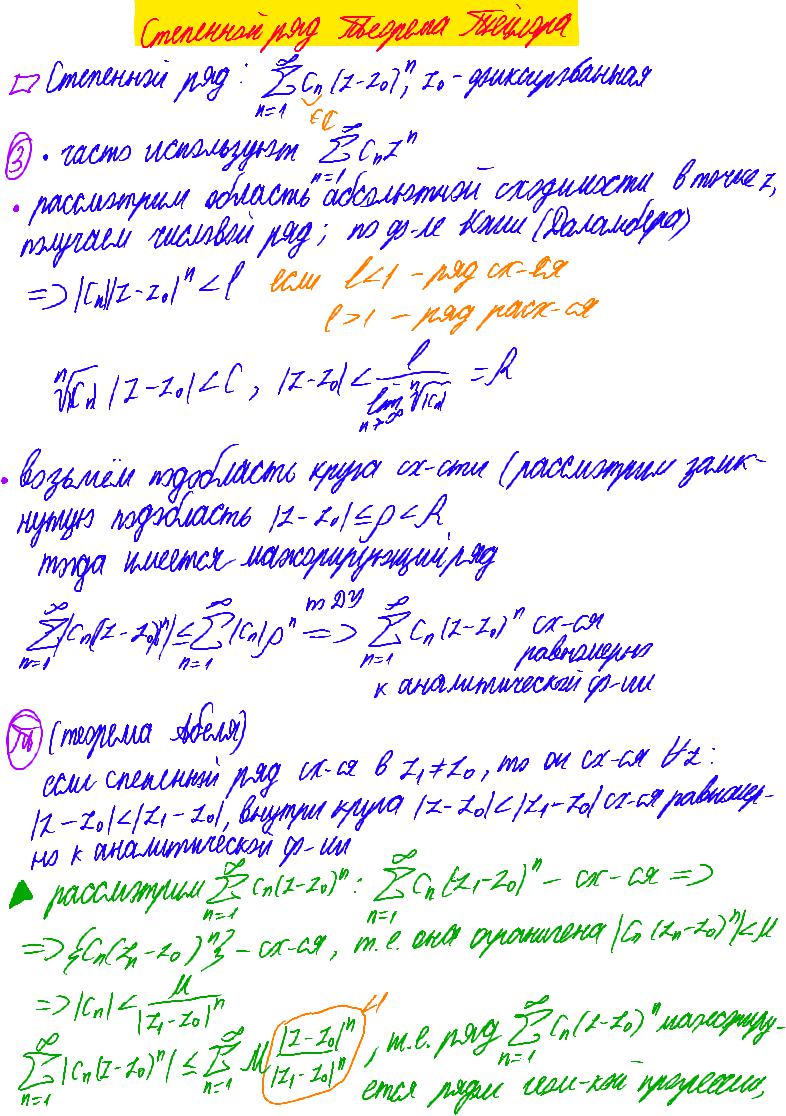 Степенной ряд Теорема Тейлора
Степенной ряд: ∑_{n=1}^∞ c_n (z-z_0)^n, z_0 - фиксированная
∈ℂ
З • часто используют ∑_{n=1}^∞ c_n z^n
• рассмотрим область абсолютной сходимости в точке z,
получаем числовой ряд; по ф-ле Коши (Даламбера)
=> |c_n||z-z_0|^n < l если l<1 - ряд сх-ся
l>1 - ряд расх-ся
ⁿ√|c_n| |z-z_0| < C, |z-z_0| < l / lim_{n→∞} ⁿ√|c_n| = R
• возьмём подобласть круга сх-сти (рассмотрим замк-
нутую подобласть |z-z_0| ≤ ρ < R
тогда имеется мажорирующий ряд
∑_{n=1}^∞ |c_n(z-z_0)^n| ≤ ∑_{n=1}^∞ |c_n| ρ^n => ∑_{n=1}^∞ c_n (z-z_0)^n сх-ся
равномерно
к аналитической ф-ии
(теорема Абеля)
если степенный ряд сх-ся в z_1≠z_0, то он сх-ся ∀z:
|z-z_0|<|z_1-z_0|, внутри круга |z-z_0|<|z_1-z_0| сх-ся равномер-
но к аналитической ф-ии
▲ рассмотрим ∑_{n=1}^∞ c_n(z-z_0)^n: ∑_{n=1}^∞ c_n (z_1-z_0)^n - сх-ся =>
=> {c_n(z_n-z_0)^n} - сх-ся, т.е. она ограничена |c_n (z_n-z_0)^n|<M
=> |c_n| < M / |z_1-z_0|^n
∑_{n=1}^∞ |c_n(z-z_0)^n| ≤ ∑_{n=1}^∞ M |z-z_0|^n / |z_1-z_0|^n <1, т.е. ряд ∑_{n=1}^∞ c_n(z-z_0)^n мажориру-
ется рядом геом-кой прогрессии,